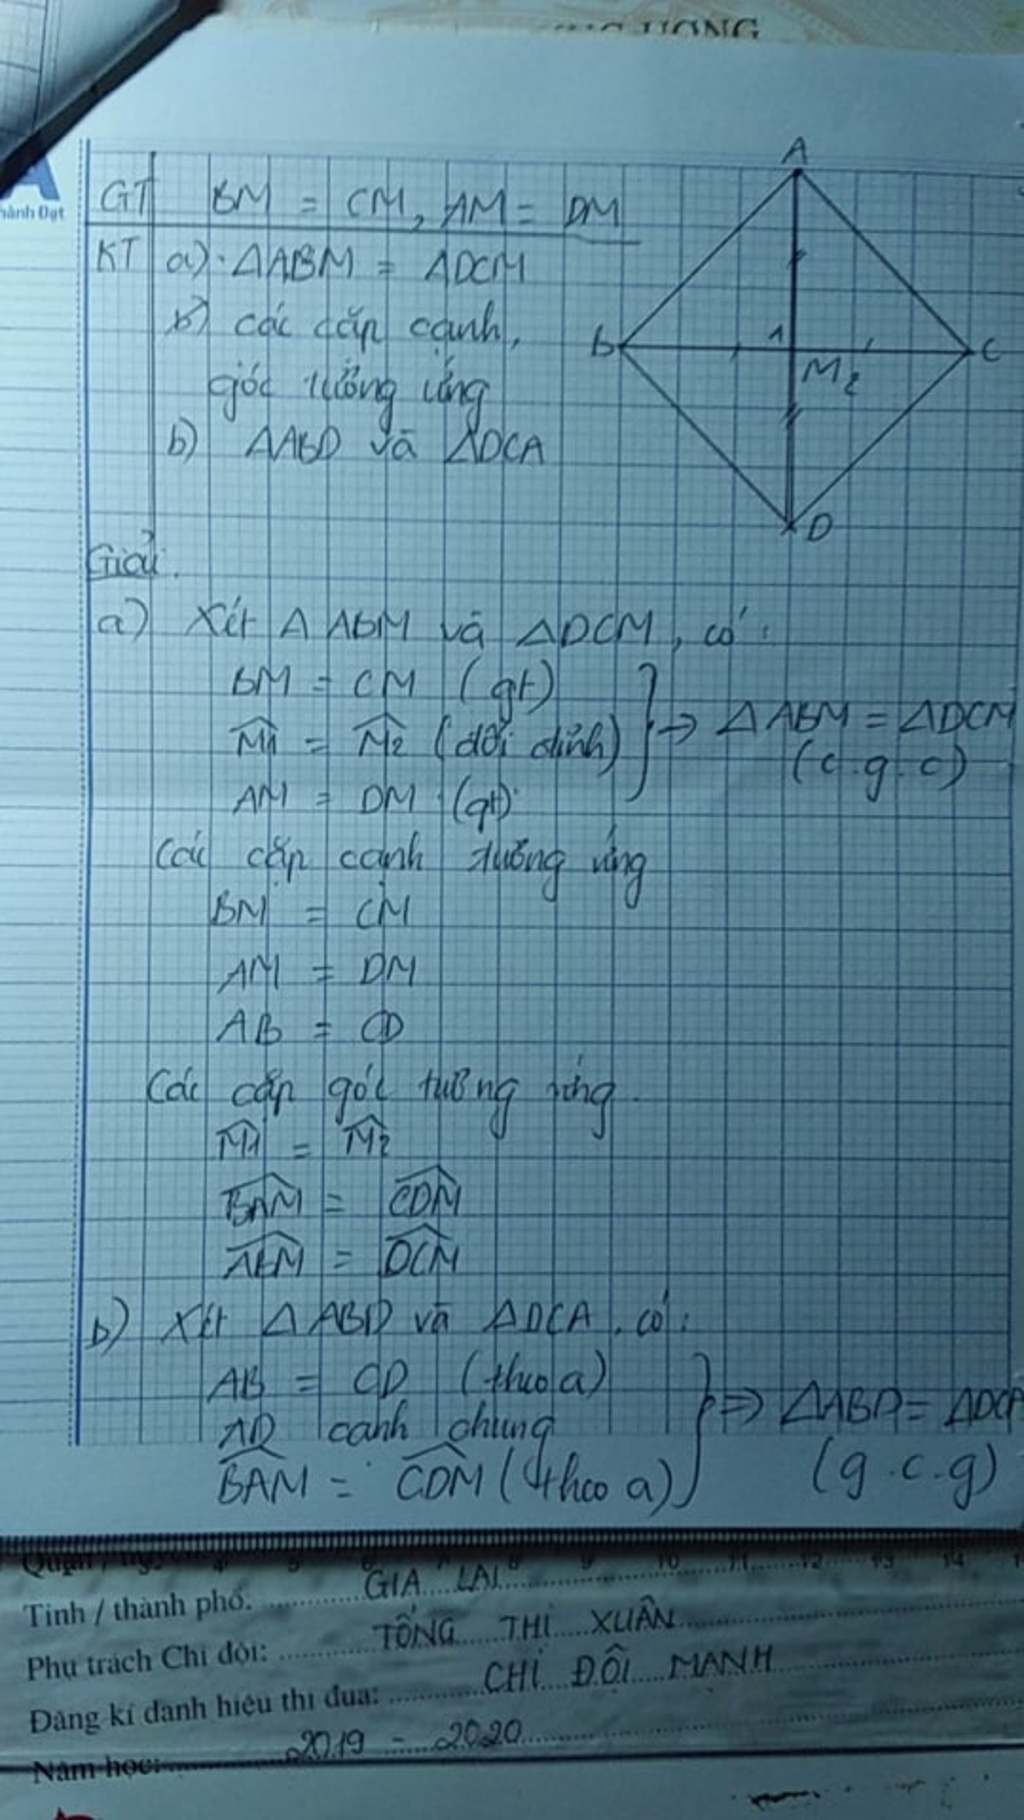 ƯƠNG
hành Đạt
A
GT BM = CM, AM = DM
KT a) ΔABM = ΔDCM
b) các cặp cạnh,
góc tương ứng
b) ΔABD và ΔDCA
B 1 C
M 2
D
Giải.
a) Xét ΔABM và ΔDCM, có:
BM = CM (gt)
M̂1 = M̂2 (đối đỉnh) => ΔABM = ΔDCM
AM = DM (gt) (c.g.c)
Các cặp cạnh tương ứng
BM = CM
AM = DM
AB = CD
Các cặp góc tương ứng.
M̂1 = M̂2
BAM = CDM
ABM = DCM
b) Xét ΔABD và ΔDCA, có:
AB = CD (theo a)
AD cạnh chung => ΔABD = ΔDCA
BAM = CDM (theo a) (g.c.g)
Tỉnh / thành phố: GIA LAI
Phụ trách Chi đội: TỐNG THỊ XUÂN
Đăng kí danh hiệu thi đua: CHI ĐỘI MẠNH
Năm học: 2019 - 2020